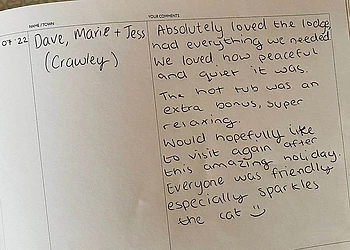 NAME / TOWN
YOUR COMMENTS
07.22
Dave, Marie + Jess
(Crawley)
Absolutely loved the lodge,
had everything we needed.
We loved how peaceful
and quiet it was.
The hot tub was an
extra bonus, super
relaxing.
Would hopefully like
to visit again after
this amazing holiday.
Everyone was friendly
especially sparkles
the cat